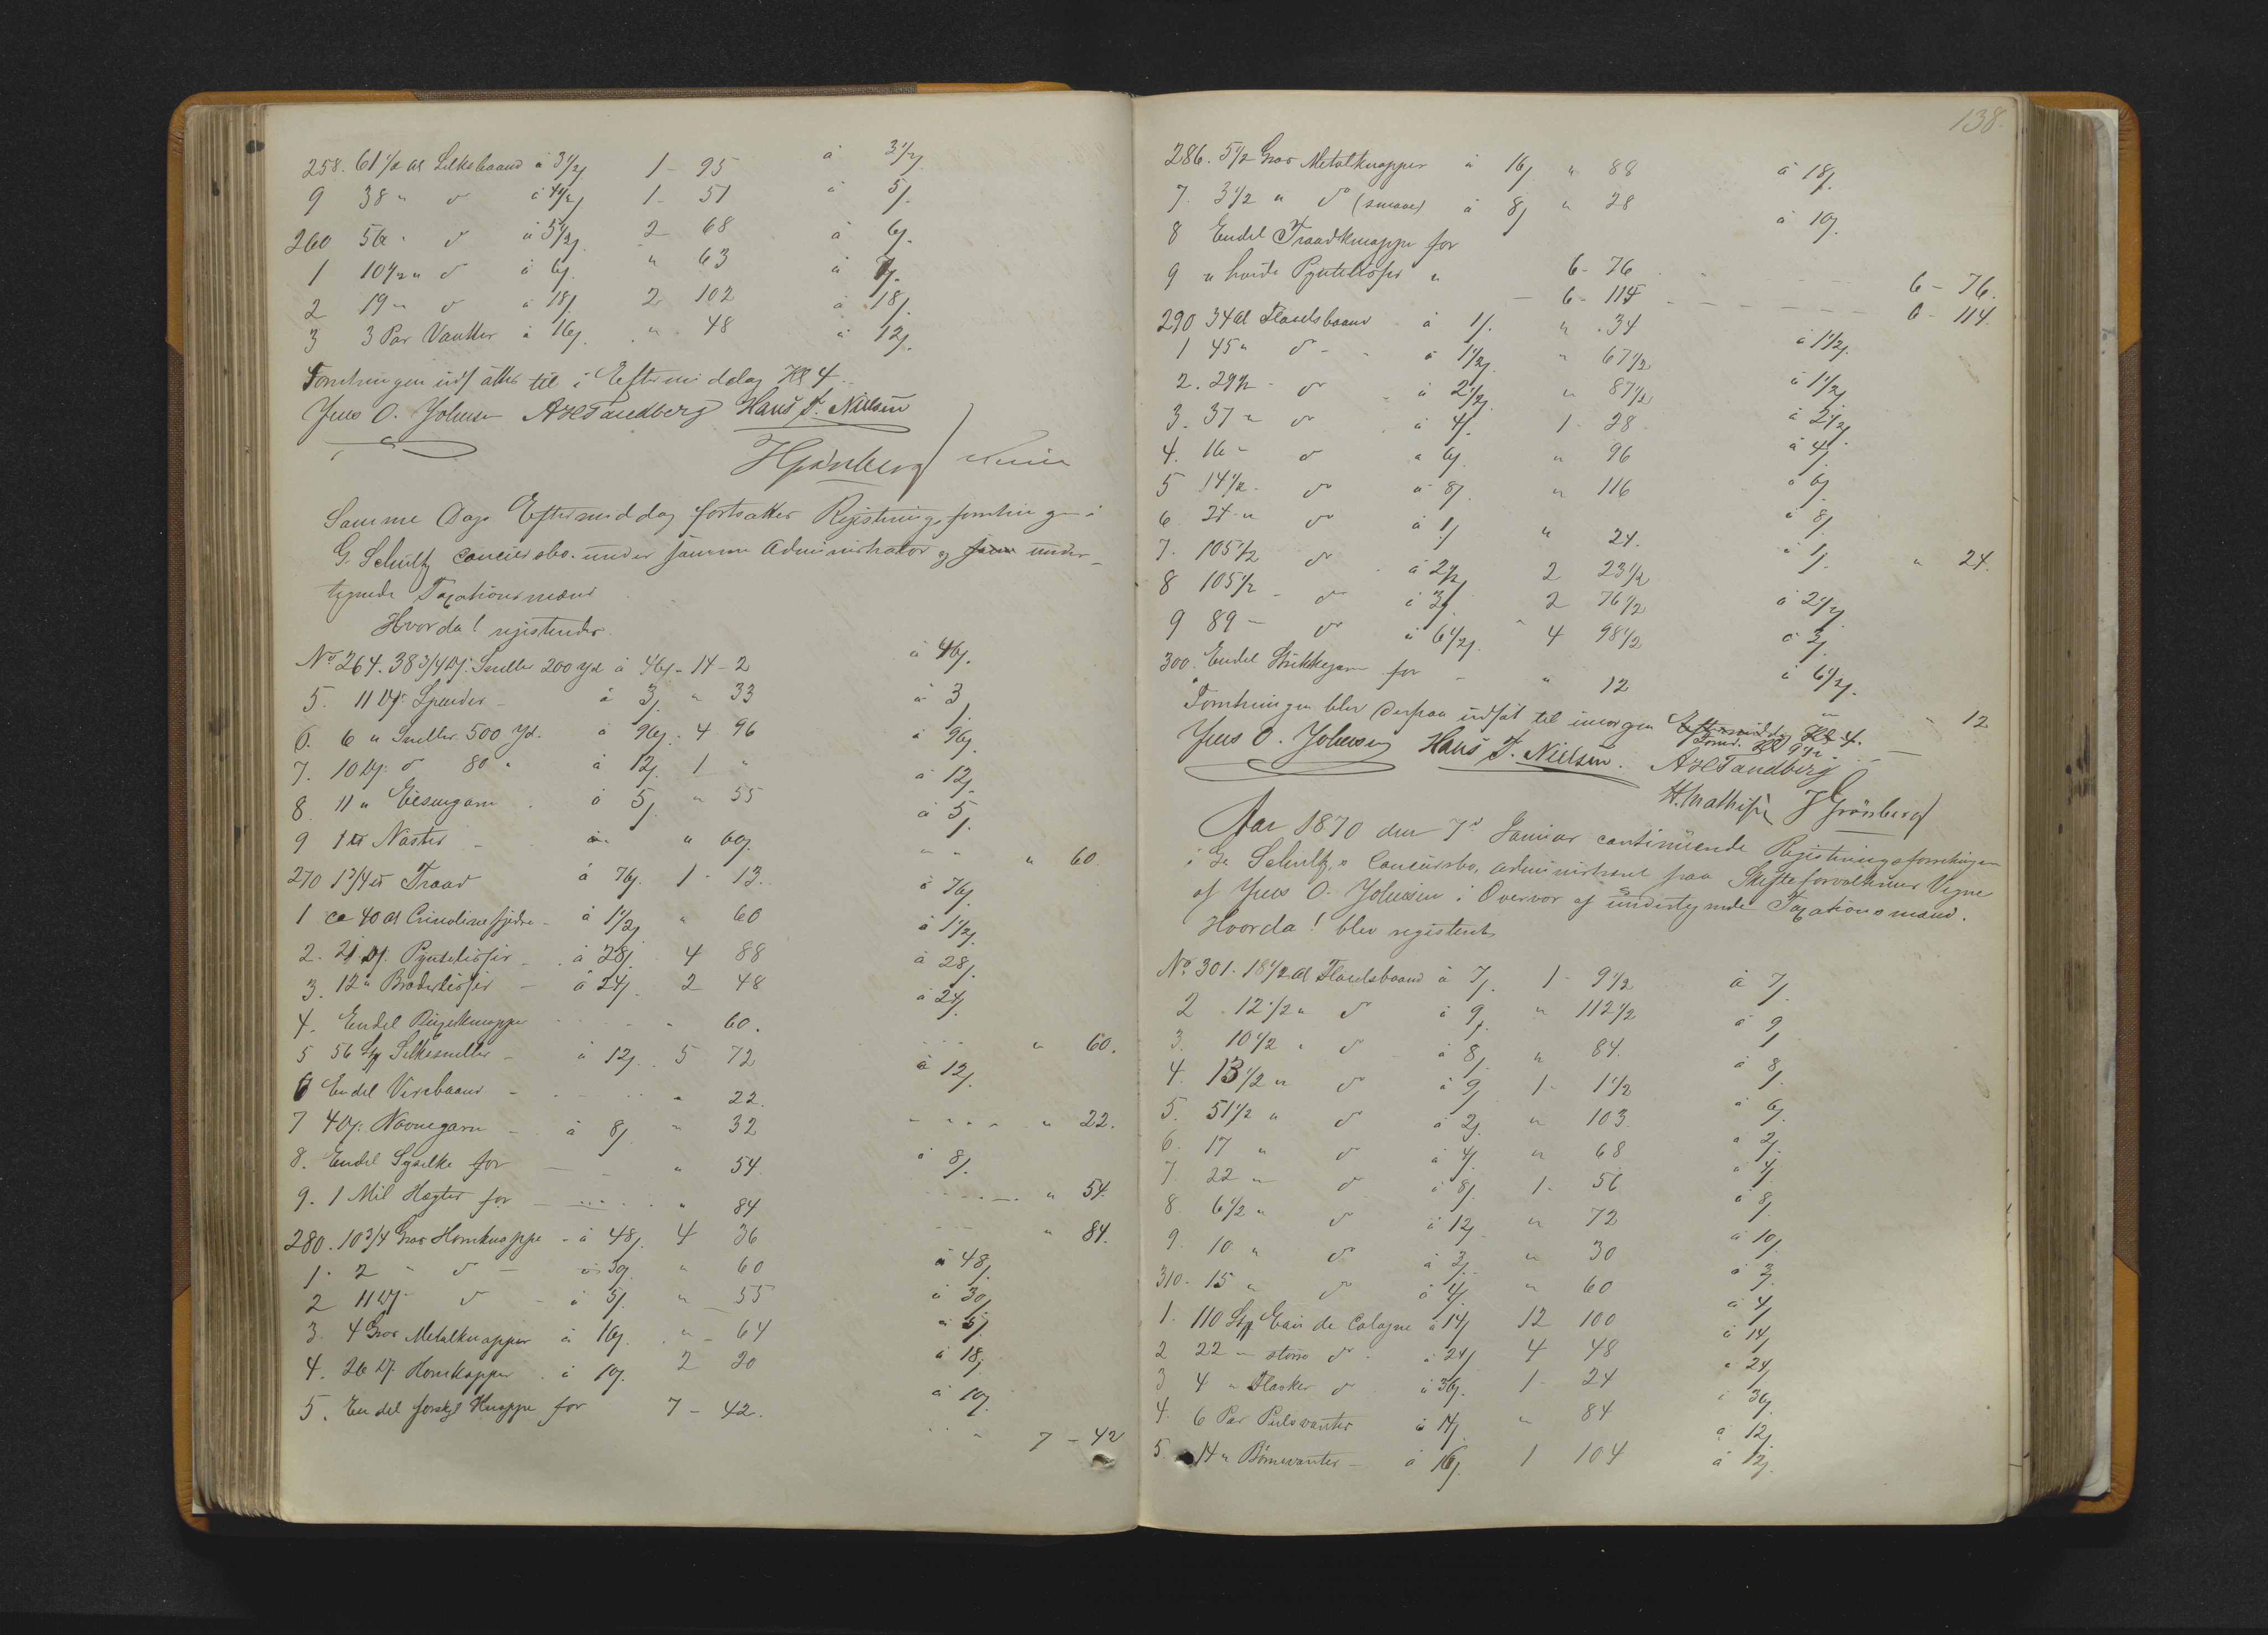 258. 61 1/2 Al Silkebaand à 3 1/2 1 - 95 à 3 1/2
9 38 " do à 4 1/2 1 - 51 à 5
260 56 " do à 5 1/2 2 68 à 6
1 10 1/2 " do à 6 " 63 à 7
2 19 " do à 18 2 102 à 18
3 3 Par Vanter à 16 " 48 à 12
Forretningen udsættes til i Eftermiddag Kl 4
Jens O. Johnsen AHSandberg Hans T. Nielsen
HGrønberg
Samme Dags Eftermiddag fortsattes Registreringsforretningen i
G. Schultz concursbo under samme Administrator og under-
tegnede Taxationsmænd
Hvorda! registreredes.
No 264. 38 3/4 Ds: Sneller 200 Yd à 46 - 14 - 2 à 46
5. 11 Ds: Spender - à 3 " 33 à 3
6. 6 " Sneller 500 Yd. à 96 - 4 96 à 96
7. 10 Ds: do 80 " à 12 1 " à 12
8 11 " Eisengarn à 5 " 55 à 5
9 1 Nåster - " 60 " 60
270 1 3/4 Traad à 76 1 - 13 à 76
1 ca 40 Al Crinolinefjedre - à 1 1/2 " 60 à 1 1/2
2. 21 Ds: Pyntelidser - à 28 4 88 à 28
3. 12 " Broderlidser - à 24 2 48 à 24
4. Endel Knappe 60. " 60.
5 56 Stk Silkesneller - à 12 5 72 à 12
6 Endel baand - " 22. " 22.
7 4 Ds: Navnegarn - à 8 " 32 à 8
8. Endel Sysilke for " 54. " 54.
9. 1 Mil Hægter for " 84 " 84.
280. 10 3/4 Gros Hornknappe - à 48 4 36 à 48
1. 2 " do - à 30 " 60 à 30
2 11 Ds: do - à 5 " 55 à 5
3. 4 Gros Metalknapper à 16 " 64 à 18
4. 26 Ds: Hornkapper à 10 2 20 à 10
5. En del forskjl Knappe for 7 - 42. 7 - 42
138.
286. 5 1/2 Gros Metalknapper à 16 " 88 à 18
7. 3 1/2 " do (smaae) à 8 " 28 à 10
8 Endel Traadknappe for 6 - 76 6 - 76.
9 " hvide Pyntelidser " 6 - 114 6 - 114
290 34 Al Fløielsbaand à 1 " 34 à 1 1/2
1 45 " do - à 1 1/2 " 67 1/2 à 1 1/2
2. 29 1/2 - do à 2 1/2 " 87 1/2 à 2 1/2
3. 37 " do à 4 1 - 28 à 4
4. 16 - do à 6 " 96 à 6
5 14 1/2 - do à 8 " 116 à 8
6. 24 " do à 1 " 24. à 1 " 24.
7. 105 1/2 do à 2 1/2 2 23 1/2 à 2 1/2
8 105 1/2 - do à 3 2 76 1/2 à 3
9 89 - do à 6 1/2 4 98 1/2 à 6 1/2
300. Endel Strikkegarn for - " 12 " 12
Forretningen blev derpaa udsat til imorgen Eftermiddag Kl 4.
Formd. Kl 9 1/2
Jens O. Johnsen Hans T. Nielsen. AHSandberg
H. Mathisen HGrønberg
Aar 1870 den 7d Januar continuende Registreringsforretningen
i G. Schultz's Concursbo, administreret paa Skifteforvalterens Vegne
af Jens O. Johnsen i Overvær af undertegnede Taxationsmænd.
Hvorda! blev registreret
No. 301. 18 1/2 Al Fløielsbaand à 7 1 - 9 1/2 à 7
2 12 1/2 " do à 9 " 112 1/2 à 9
3. 10 1/2 " do à 8 " 84. à 8
4. 13 1/2 " do à 9 1 - 1 1/2 à 6
5. 51 1/2 " do à 2 " 103. à 2
6. 17 " do à 4 " 68 à 4
7. 22 " do à 8 1 - 56 à 8
8. 6 1/2 " do à 12 " 72 à 10
9. 10 " do à 3 " 30 à 3
310. 15 " do à 4 " 60 à 4
1. 110 Stk Eau de Cologne à 14 12 100 à 14
2 22 " større do à 24 4 48 à 24
3 4 " Flasker do à 36 1 - 24 à 36
4. 6 Par Pulsvanter à 14 " 84 à 12
5. 14 " Børnevanter - à 16 1 104 à 12